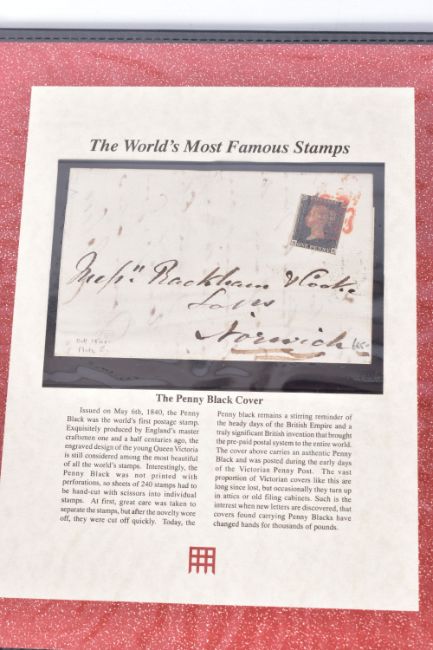 The World's Most Famous Stamps
ONE PENNY
Messrs Rackham & Cooke
Norwich
The Penny Black Cover
Issued on May 6th, 1840, the Penny
Black was the world's first postage stamp.
Exquisitely produced by England's master
craftsmen one and a half centuries ago, the
engraved design of the young Queen Victoria
is still considered among the most beautiful
of all the world's stamps. Interestingly, the
Penny Black was not printed with
perforations, so sheets of 240 stamps had to
be hand-cut with scissors into individual
stamps. At first, great care was taken to
separate the stamps, but after the novelty wore
off, they were cut off quickly. Today, the
Penny black remains a stirring reminder of
the heady days of the British Empire and a
truly significant British invention that brought
the pre-paid postal system to the entire world.
The cover above carries an authentic Penny
Black and was posted during the early days
of the Victorian Penny Post. The vast
proportion of Victorian covers like this are
long since lost, but occasionally they turn up
in attics or old filing cabinets. Such is the
interest when new letters are discovered, that
covers found carrying Penny Blacks have
changed hands for thousands of pounds.